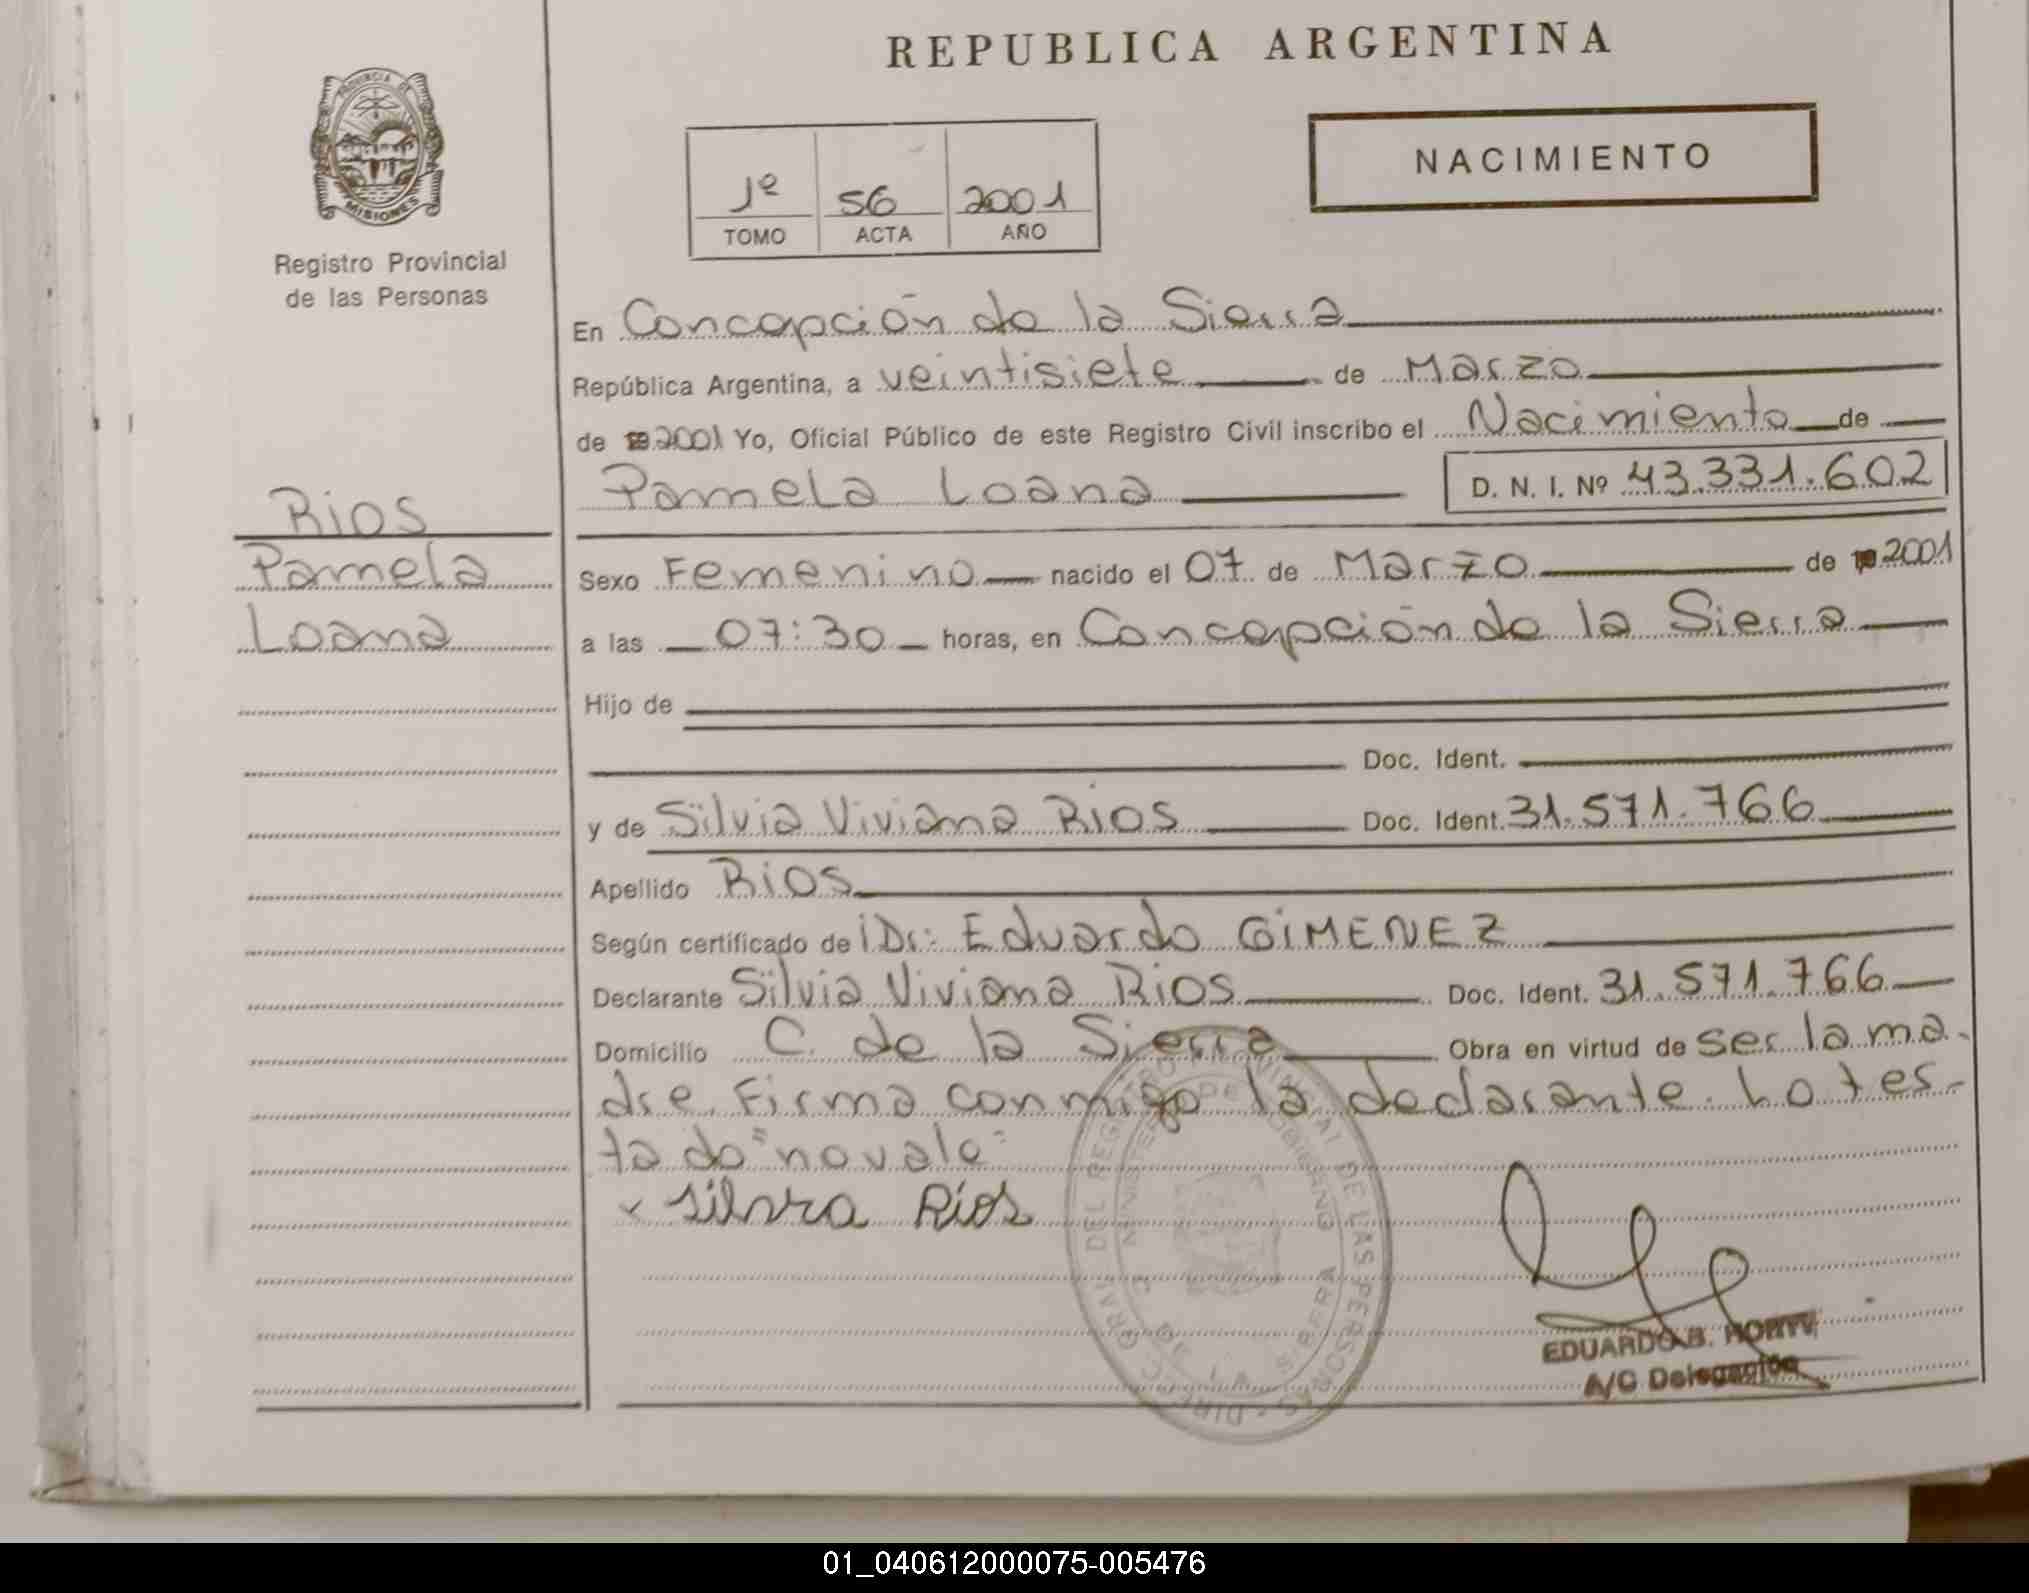 REPUBLICA ARGENTINA
PROVINCIA DE
MISIONES
Registro Provincial
de las Personas
1º 56 2001
TOMO ACTA AÑO
NACIMIENTO
En Concepción de la Sierra
República Argentina, a veintisiete de Marzo
de 2001 Yo, Oficial Público de este Registro Civil inscribo el Nacimiento de
Pamela Loana D. N. I. Nº 43.331.602
Rios
Pamela
Loana
Sexo Femenino nacido el 07 de Marzo de 2001
a las 07:30 horas, en Concepción de la Sierra
Hijo de
Doc. Ident.
y de Silvia Viviana Rios Doc. Ident. 31.571.766
Apellido Rios
Según certificado de Dr: Eduardo GIMENEZ
Declarante Silvia Viviana Rios Doc. Ident. 31.571.766
Domicilio C. de la Sierra Obra en virtud de ser la ma-
dre. Firma conmigo la declarante. Lo tes-
tado "no vale"
Silvia Rios
DIREC. GRAL. DEL REGISTRO PROVINCIAL DE LAS PERSONAS
MINISTERIO DE GOBIERNO
C. DE LA SIERRA
EDUARDO B.
A/C Delegación
01_040612000075-005476